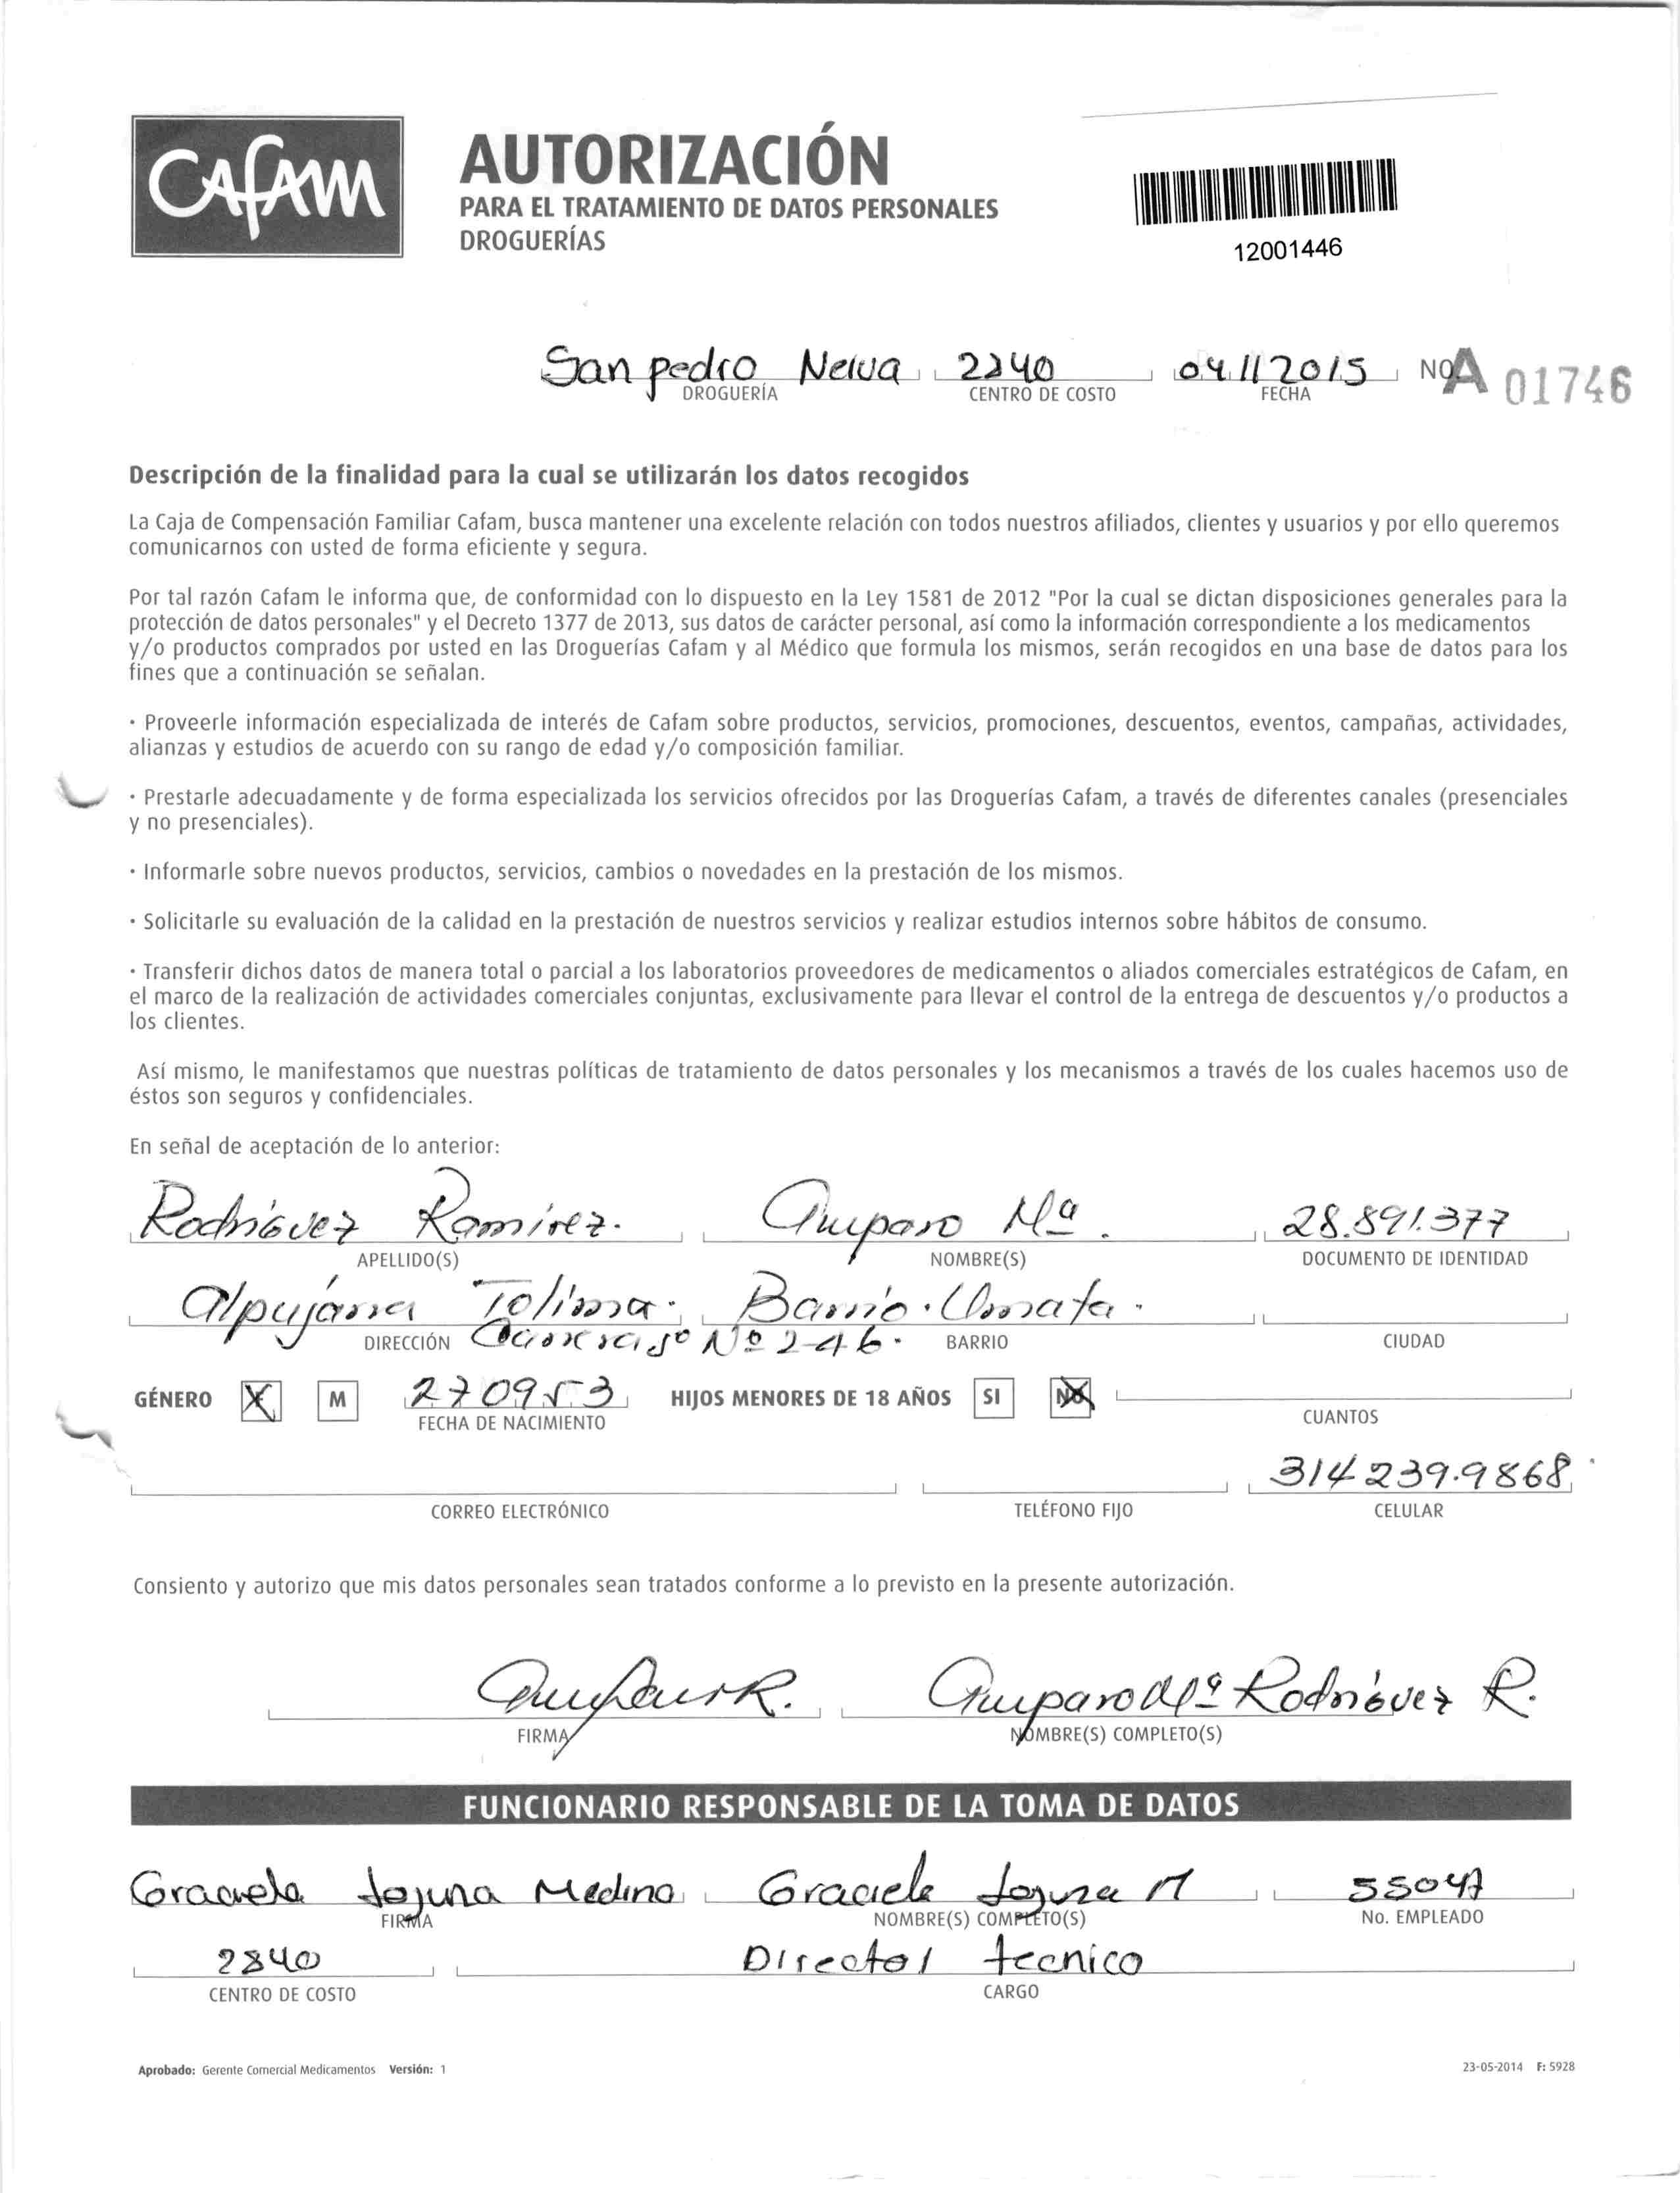 CAFAM
AUTORIZACIÓN
PARA EL TRATAMIENTO DE DATOS PERSONALES
DROGUERÍAS
12001446
San pedro Neiva 2240 04 11 2015 NO A 01746
DROGUERÍA CENTRO DE COSTO FECHA
Descripción de la finalidad para la cual se utilizarán los datos recogidos
La Caja de Compensación Familiar Cafam, busca mantener una excelente relación con todos nuestros afiliados, clientes y usuarios y por ello queremos
comunicarnos con usted de forma eficiente y segura.
Por tal razón Cafam le informa que, de conformidad con lo dispuesto en la Ley 1581 de 2012 "Por la cual se dictan disposiciones generales para la
protección de datos personales" y el Decreto 1377 de 2013, sus datos de carácter personal, así como la información correspondiente a los medicamentos
y/o productos comprados por usted en las Droguerías Cafam y al Médico que formula los mismos, serán recogidos en una base de datos para los
fines que a continuación se señalan.
· Proveerle información especializada de interés de Cafam sobre productos, servicios, promociones, descuentos, eventos, campañas, actividades,
alianzas y estudios de acuerdo con su rango de edad y/o composición familiar.
· Prestarle adecuadamente y de forma especializada los servicios ofrecidos por las Droguerías Cafam, a través de diferentes canales (presenciales
y no presenciales).
· Informarle sobre nuevos productos, servicios, cambios o novedades en la prestación de los mismos.
· Solicitarle su evaluación de la calidad en la prestación de nuestros servicios y realizar estudios internos sobre hábitos de consumo.
· Transferir dichos datos de manera total o parcial a los laboratorios proveedores de medicamentos o aliados comerciales estratégicos de Cafam, en
el marco de la realización de actividades comerciales conjuntas, exclusivamente para llevar el control de la entrega de descuentos y/o productos a
los clientes.
Así mismo, le manifestamos que nuestras políticas de tratamiento de datos personales y los mecanismos a través de los cuales hacemos uso de
éstos son seguros y confidenciales.
En señal de aceptación de lo anterior:
Rodríguez Ramírez. Amparo Mª. 28.891.377
APELLIDO(S) NOMBRE(S) DOCUMENTO DE IDENTIDAD
Alpujarra Tolima. Barrio.
DIRECCIÓN Nº 2-46. BARRIO CIUDAD
GÉNERO X M 270953 HIJOS MENORES DE 18 AÑOS SI NO
FECHA DE NACIMIENTO CUANTOS
314 239.9868
CORREO ELECTRÓNICO TELÉFONO FIJO CELULAR
Consiento y autorizo que mis datos personales sean tratados conforme a lo previsto en la presente autorización.
Amparo Mª Rodríguez R.
FIRMA NOMBRE(S) COMPLETO(S)
FUNCIONARIO RESPONSABLE DE LA TOMA DE DATOS
Graciela Medina Graciela 55047
FIRMA NOMBRE(S) COMPLETO(S) No. EMPLEADO
2240 Director tecnico
CENTRO DE COSTO CARGO
Aprobado: Gerente Comercial Medicamentos Versión: 1 23-05-2014 F: 5928